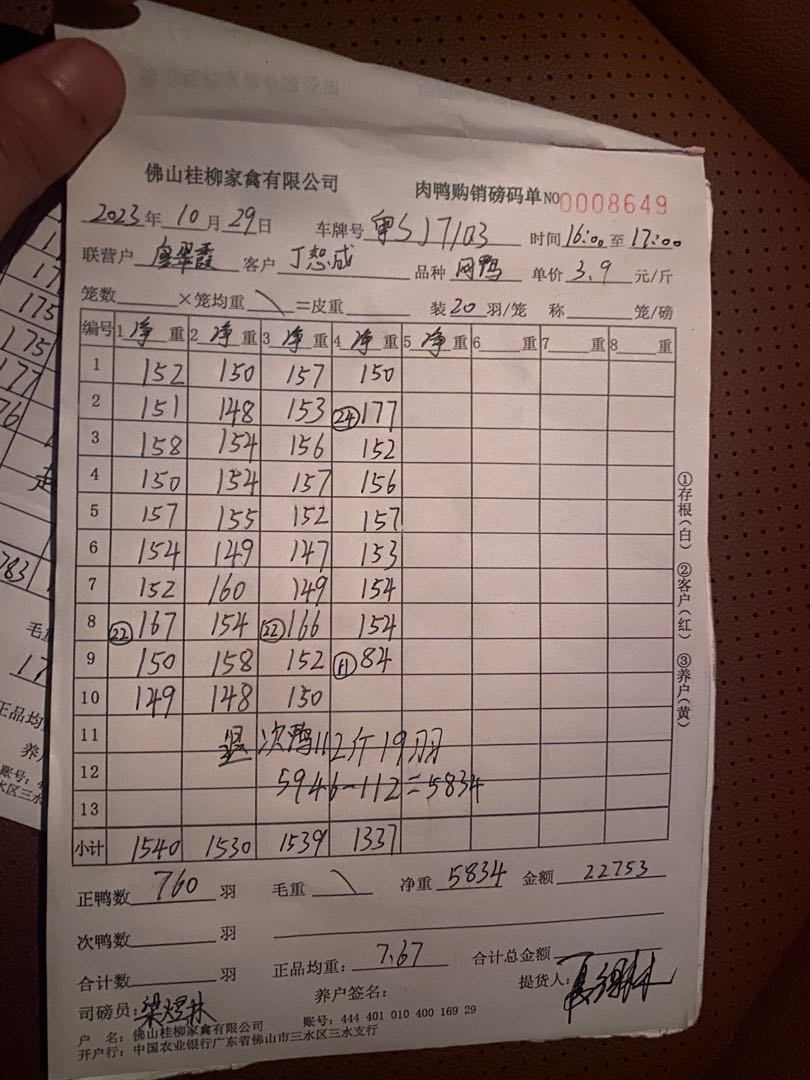 佛山桂柳家禽有限公司 肉鸭购销磅码单 NO 0008649
2023年10月29日 车牌号 时间16:00至17:00
联营户 客户 品种 单价 3.9 元/斤
笼数 ×笼均重 \ =皮重 装20羽/笼 称 笼/磅
编号 1净重 2净重 3净重 4净重 5净重 6 重 7 重 8 重
1 152 150 157 150
2 151 148 153 (24)177
3 158 154 156 152
4 150 154 157 156
5 157 155 152 157
6 154 149 147 153
7 152 160 149 154
8 (22)167 154 (22)166 154
9 150 158 152 (11)84
10 149 148 150
11 次鸭112斤19羽
12 5946-112=5834
13
小计 1540 1530 1539 1337
①存根(白) ②客户(红) ③养户(黄)
正鸭数 760 羽 毛重 \ 净重 5834 金额 22753
次鸭数 羽
合计数 羽 正品均重: 7.67 合计总金额
司磅员: 梁煜林 养户签名: 提货人:
户 名: 佛山桂柳家禽有限公司 账号: 444 401 010 400 169 29
开户行: 中国农业银行广东省佛山市三水区三水支行
175
175
177
76
783
正品均
账号: 4
水区三水